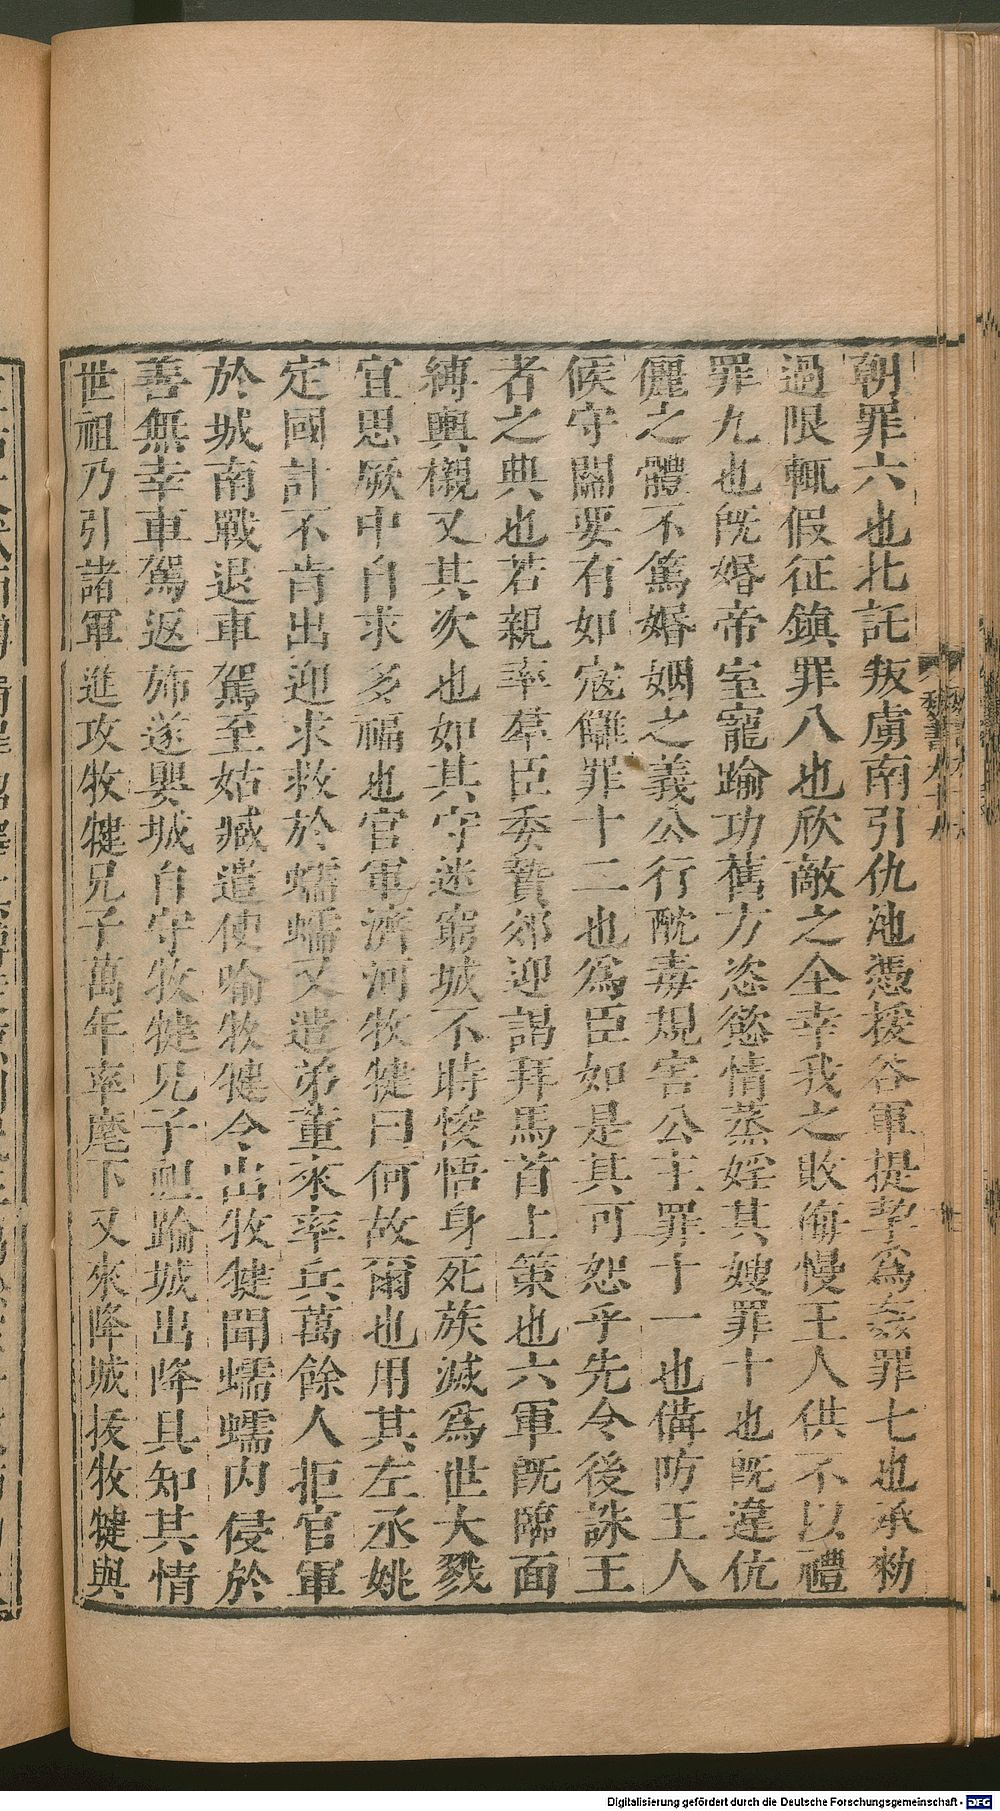 朝罪六也北託叛虜南引仇池憑援谷軍提挈爲姦罪七也承勑
過限輒假征鎮罪八也欣敵之全幸我之敗侮慢王人供不以禮
罪九也既婚帝室寵踰功舊方恣慾情蒸婬其嫂罪十也既違伉
儷之體不篤婚姻之義公行酖毒規害公主罪十一也備防王人
候守關要有如寇讎罪十二也爲臣如是其可恕乎先令後誅王
者之典也若親率羣臣委贄郊迎謁拜馬首上策也六軍既臨面
縛輿櫬又其次也如其守迷窮城不時悛悟身死族滅爲世大戮
宜思厥中自求多福也官軍濟河牧犍曰何故爾也用其左丞姚
定國計不肯出迎求救於蠕蠕又遣弟董來率兵萬餘人拒官軍
於城南戰退車駕至姑臧遣使喻牧犍令出牧犍聞蠕蠕內侵於
善無幸車駕返斾遂嬰城自守牧犍兄子祖踰城出降具知其情
世祖乃引諸軍進攻牧犍兄子萬年率麾下又來降城拔牧犍與
Digitalisierung gefördert durch die Deutsche Forschungsgemeinschaft - DFG